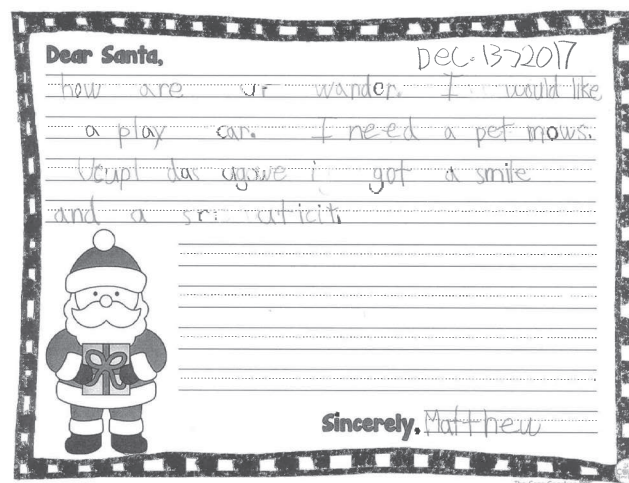 Dear Santa,
Dec. 13, 2017
how are ur wander. I would like
a play car. I need a pet mows.
das i got a smile
and a
Sincerely, Matthew